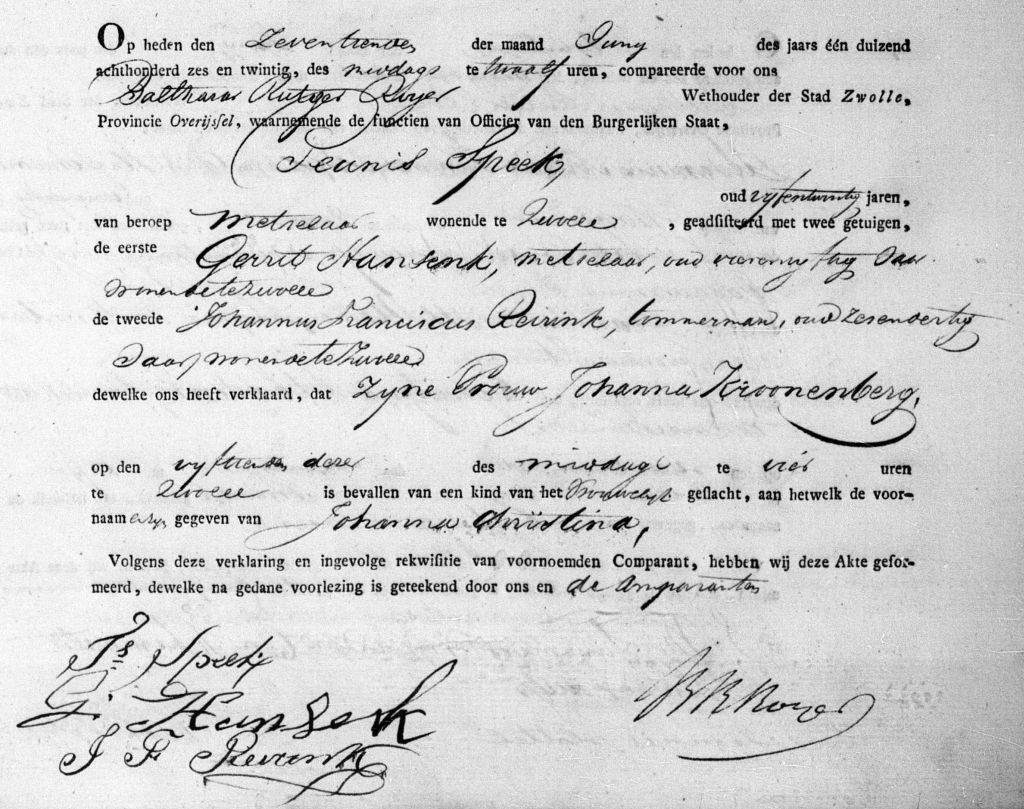 Op heden den Zeventienden der maand Juny des jaars één duizend
achthonderd zes en twintig, des middags te twaalf uren, compareerde voor ons
Balthasar Rutger Royer Wethouder der Stad Zwolle,
Provincie Overijssel, waarnemende de functien van Officier van den Burgerlijken Staat,
Teunis Speek,
oud vyfentwintig jaren,
van beroep Metselaar wonende te Zwolle, geadsisteerd met twee getuigen,
de eerste Gerrit Hansenk, metselaar, oud Jaar
wonende te Zwolle
de tweede Johannus Franciscus Revink, timmerman, oud zesendertig
Jaar, wonende te Zwolle
dewelke ons heeft verklaard, dat Zyne Vrouw Johanna Kroonenberg,
op den vyftienden dezer des middags te vier uren
te Zwolle is bevallen van een kind van het Vrouwelyk geslacht, aan hetwelk de voor-
naam gegeven van Johanna Christina,
Volgens deze verklaring en ingevolge rekwisitie van voornoemden Comparant, hebben wij deze Akte gefor-
meerd, dewelke na gedane voorlezing is geteekend door ons en de
Ts Speek
G. Hanzenk
J F Revink
B R Royer